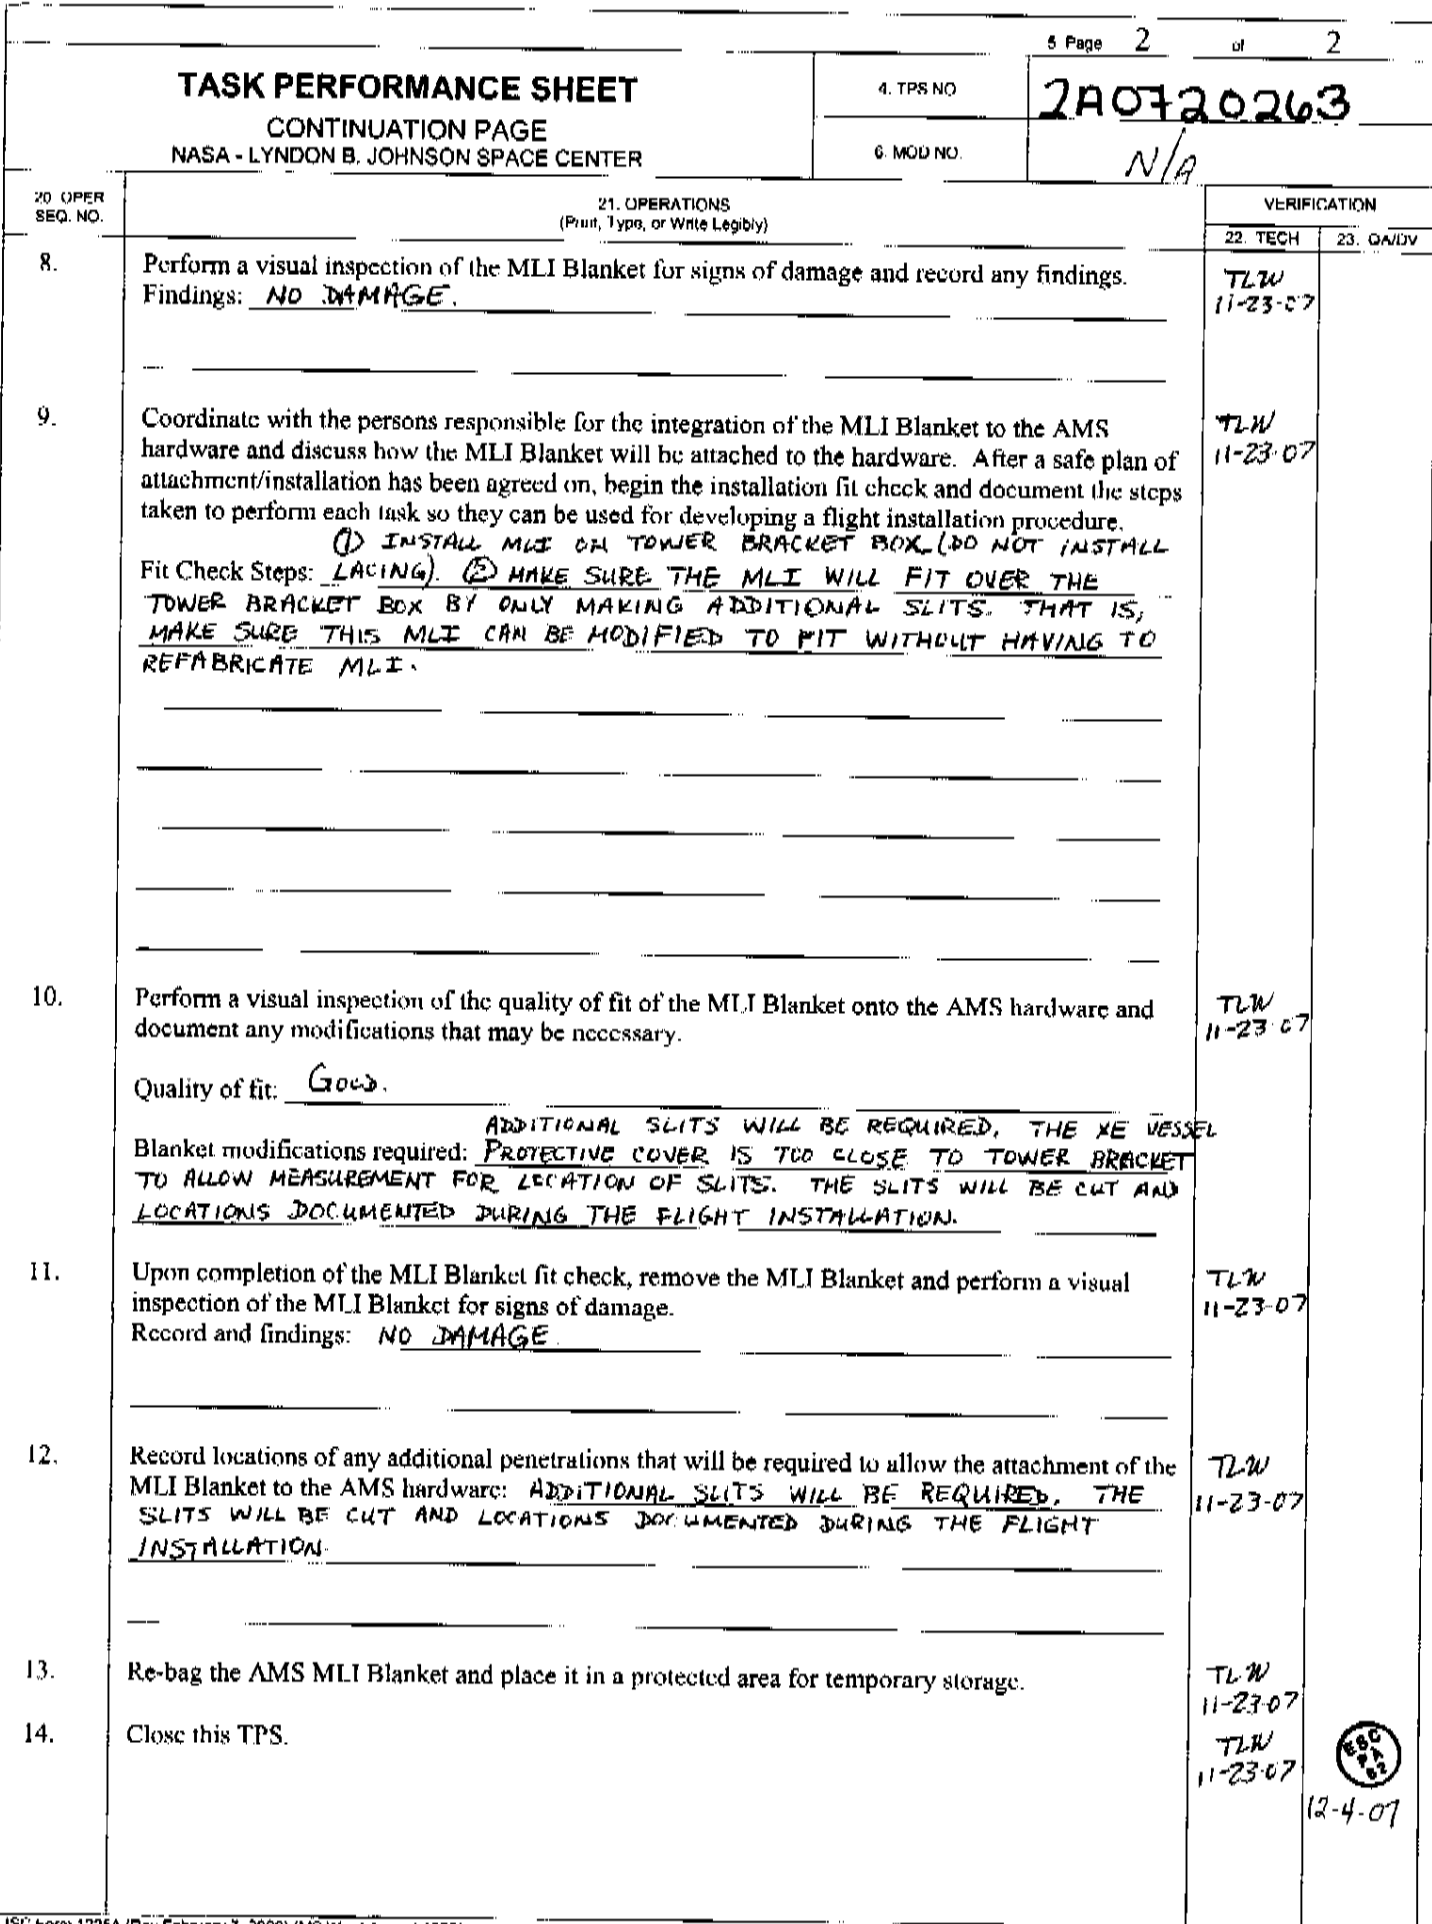 5 Page 2 of 2
TASK PERFORMANCE SHEET
CONTINUATION PAGE
NASA - LYNDON B. JOHNSON SPACE CENTER
4. TPS NO
2A0720263
6. MOD NO.
N/A
20 OPER
SEQ. NO.
21. OPERATIONS
(Print, Type, or Write Legibly)
VERIFICATION
22. TECH
23. QA/DV
8.
Perform a visual inspection of the MLI Blanket for signs of damage and record any findings.
Findings: NO DAMAGE.
TLW
11-23-07
9.
Coordinate with the persons responsible for the integration of the MLI Blanket to the AMS
hardware and discuss how the MLI Blanket will be attached to the hardware. After a safe plan of
attachment/installation has been agreed on, begin the installation fit check and document the steps
taken to perform each task so they can be used for developing a flight installation procedure.
① INSTALL MLI ON TOWER BRACKET BOX (DO NOT INSTALL
Fit Check Steps: LACING). ② MAKE SURE THE MLI WILL FIT OVER THE
TOWER BRACKET BOX BY ONLY MAKING ADDITIONAL SLITS. THAT IS,
MAKE SURE THIS MLI CAN BE MODIFIED TO FIT WITHOUT HAVING TO
REFABRICATE MLI.
TLW
11-23-07
10.
Perform a visual inspection of the quality of fit of the MLI Blanket onto the AMS hardware and
document any modifications that may be necessary.
Quality of fit: GOOD.
ADDITIONAL SLITS WILL BE REQUIRED. THE XE VESSEL
Blanket modifications required: PROTECTIVE COVER IS TOO CLOSE TO TOWER BRACKET
TO ALLOW MEASUREMENT FOR LOCATION OF SLITS. THE SLITS WILL BE CUT AND
LOCATIONS DOCUMENTED DURING THE FLIGHT INSTALLATION.
TLW
11-23-07
11.
Upon completion of the MLI Blanket fit check, remove the MLI Blanket and perform a visual
inspection of the MLI Blanket for signs of damage.
Record and findings: NO DAMAGE
TLW
11-23-07
12.
Record locations of any additional penetrations that will be required to allow the attachment of the
MLI Blanket to the AMS hardware: ADDITIONAL SLITS WILL BE REQUIRED. THE
SLITS WILL BE CUT AND LOCATIONS DOCUMENTED DURING THE FLIGHT
INSTALLATION.
TLW
11-23-07
13.
Re-bag the AMS MLI Blanket and place it in a protected area for temporary storage.
TLW
11-23-07
14.
Close this TPS.
TLW
11-23-07
ESC
PA
62
12-4-07